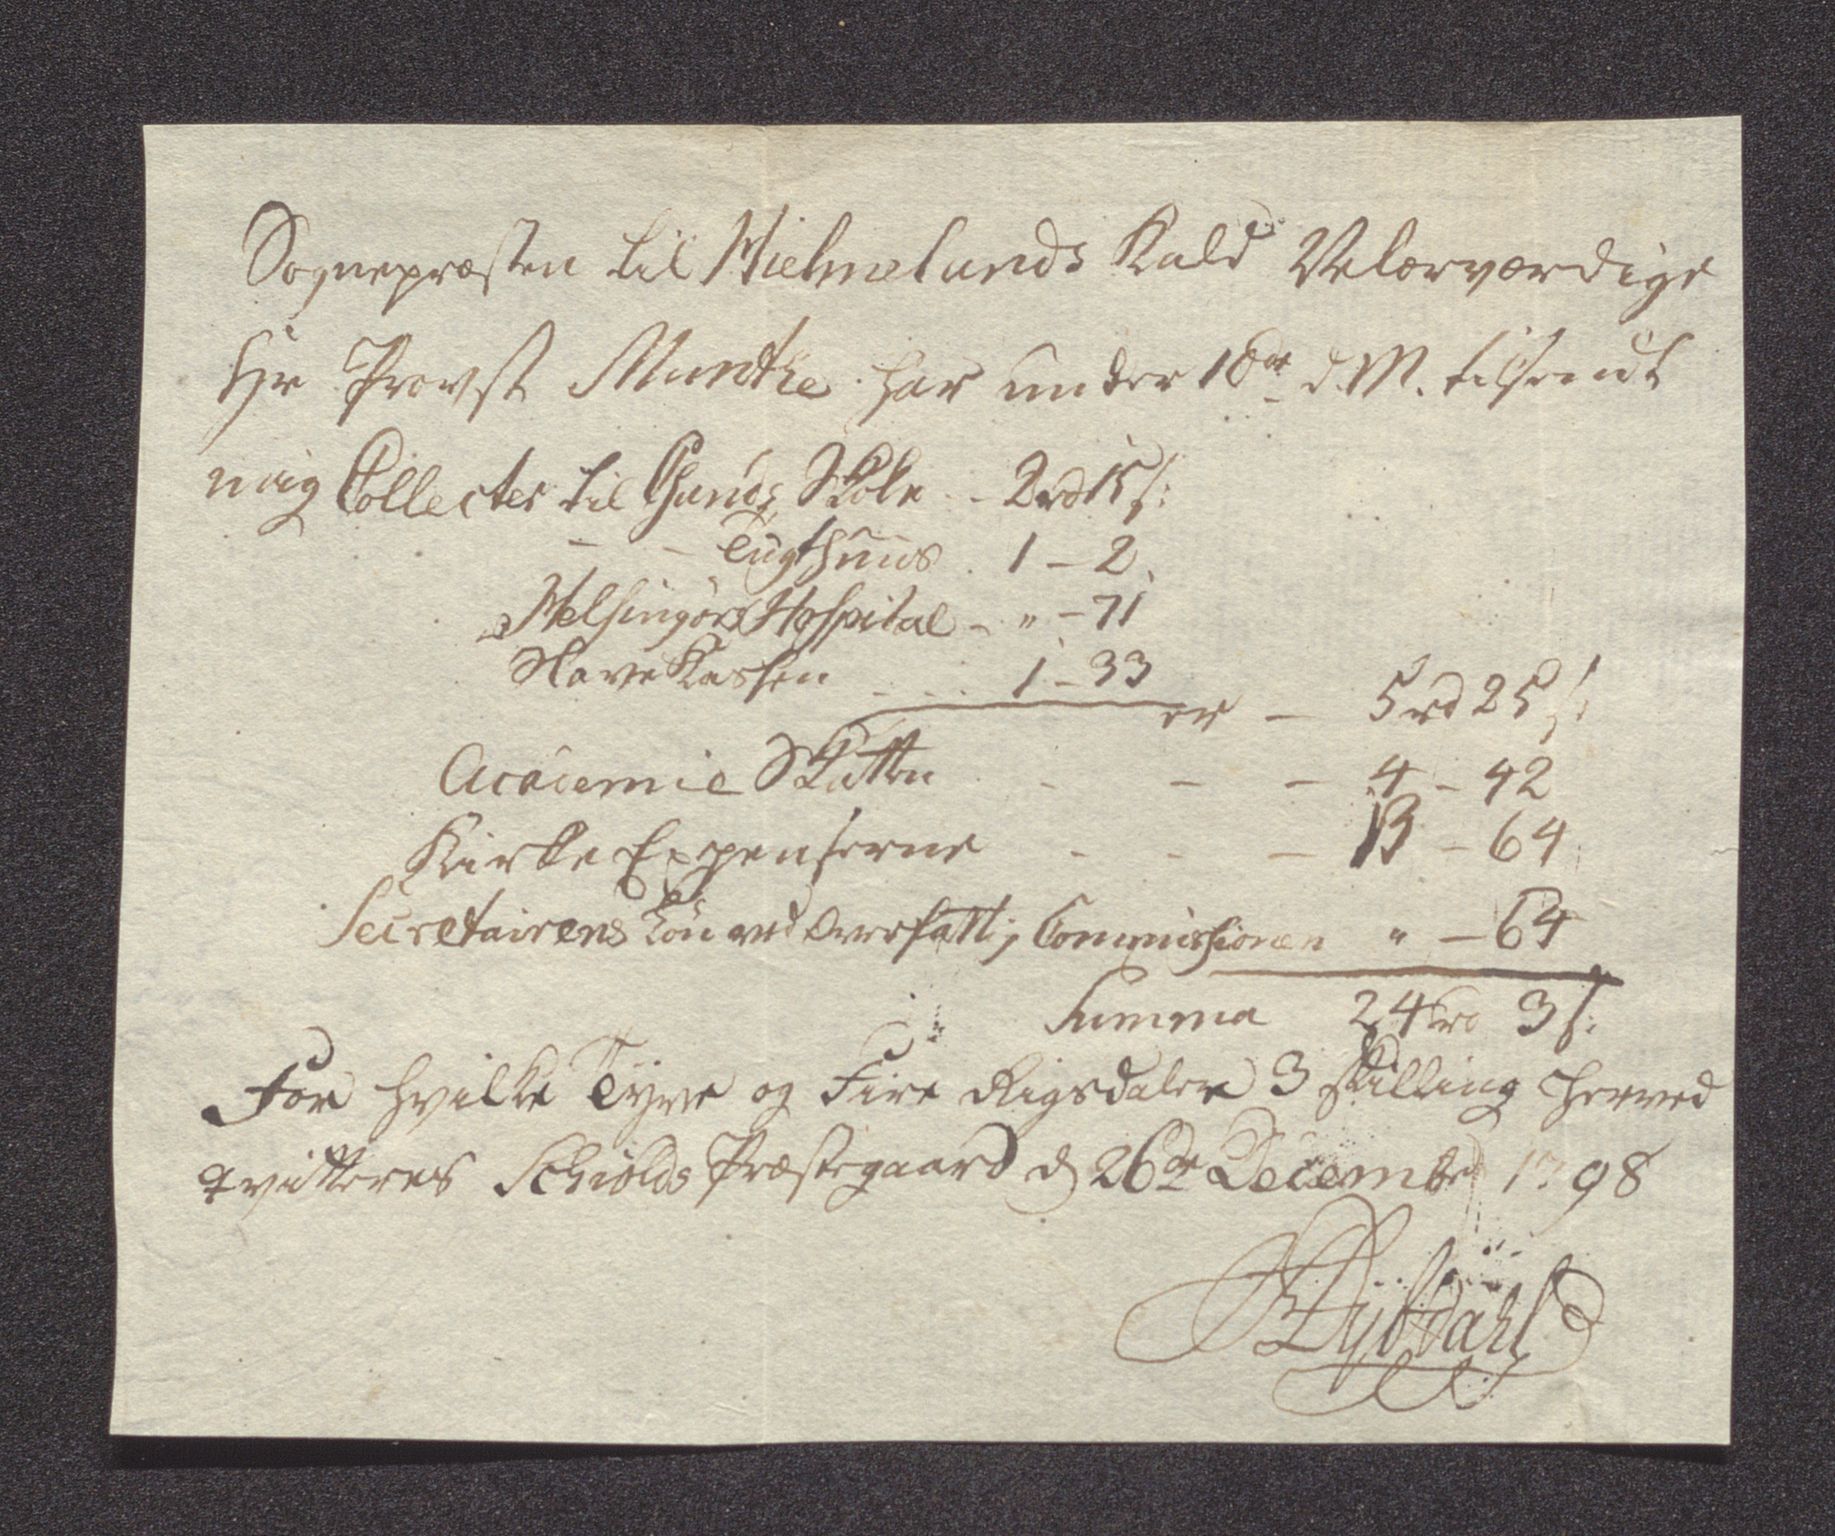 Sognepræsten til Hielmelands Kald Velærværdige
Hr Provst Munthe har under 18de d. M. tilsendt
mig Collecter til Gands Skole - 2 rd 15 s:
- - Tugthuus. 1 - 2.
Helsingørs Hospital - " - 71
Slave Kassen - - . 1 - 33
er - 5 rd 25 s:
Academie Skatten - - - 4 - 42
Kirke Expenserne - - - 13 - 64
Secretairens Løn ved Overfattig Commissionen " - 64
Summa 24 rd 3 s:
For hvilke Tyve og Fire Rigsdaler 3 skilling herved
qvitteres Schiolds Præstegaard d 26de December 1798
Dybdahl